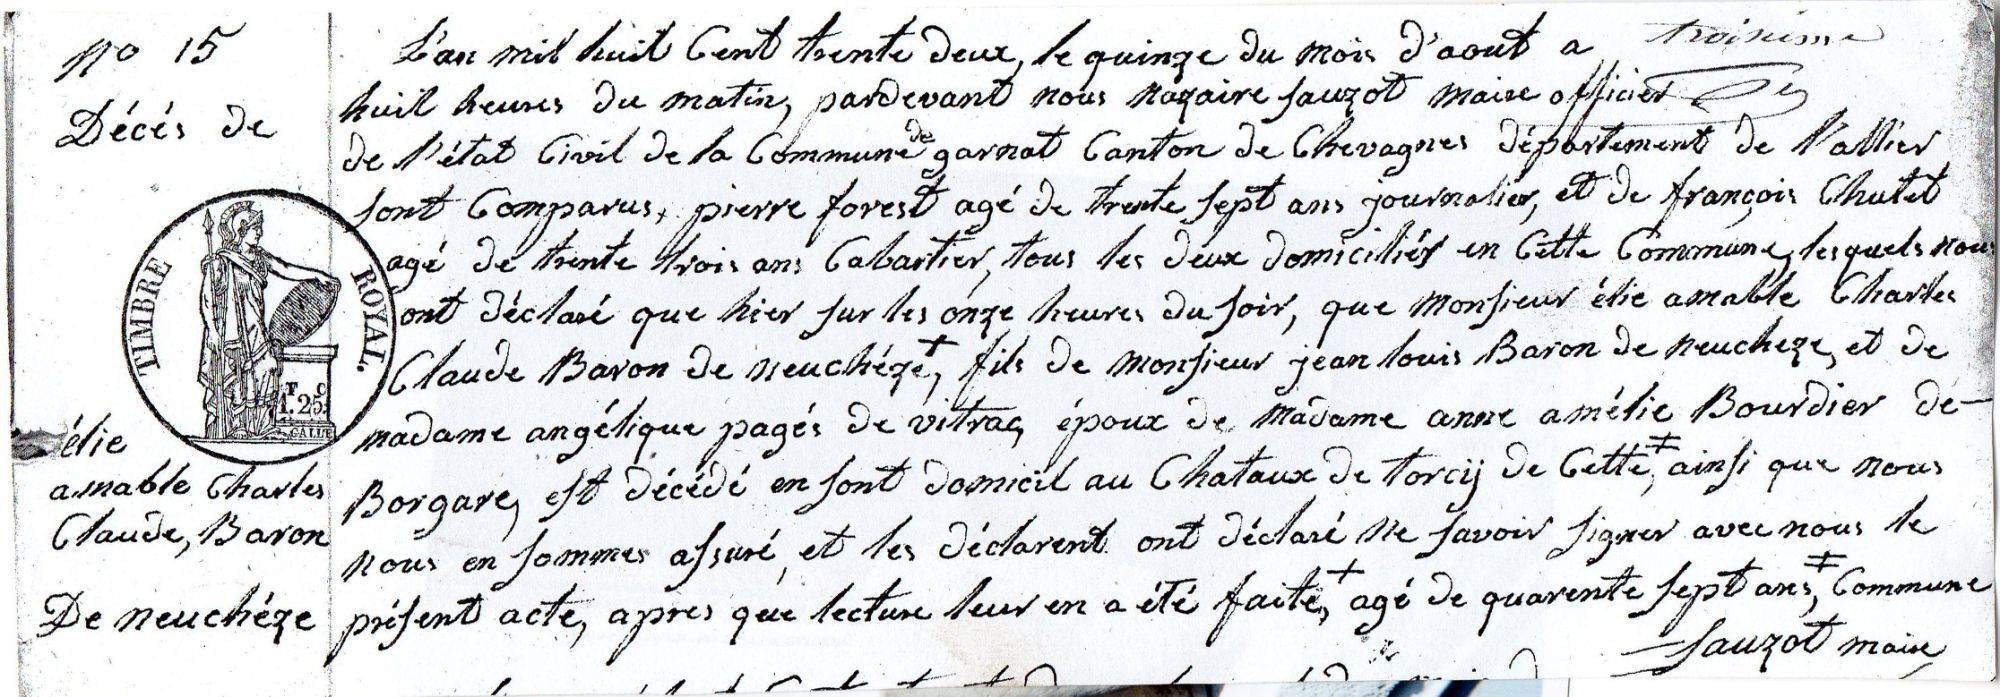 No 15
Décés de
élie
amable Charles
Claude, Baron
De neuchéze
TIMBRE ROYAL.
F C
1.25
troisieme
L'an mil huit Cent trente deux, le quinze du mois d'aout a
huit heures du matin, pardevant nous nazaire sauzot maire officier
de l'état Civil de la Commune de garnat Canton de Chevagnes département de l'allier
sont Comparus, pierre forest agé de trente sept ans journalier, et de françois Chutet
agé de trente trois ans Cabartier, tous les deux domiciliés en Cette Commune, lesquels nous
ont déclaré que hier sur les onze heures du soir, que monsieur élie amable Charles
Claude Baron de neuchéze,+ fils de monsieur jean louis Baron de neucheze, et de
madame angélique pagés de vitrac, époux de madame anne amélie Bourdier de
Borgare, est décédé en sont domicil au Chataux de torcij de Cette,‡ ainsi que nous
nous en sommes assuré, et les déclarent ont déclaré ne savoir signer avec nous le
présent acte, apres que lecture leur en a été faite,+ agé de quarente sept ans,‡ Commune
sauzot maire